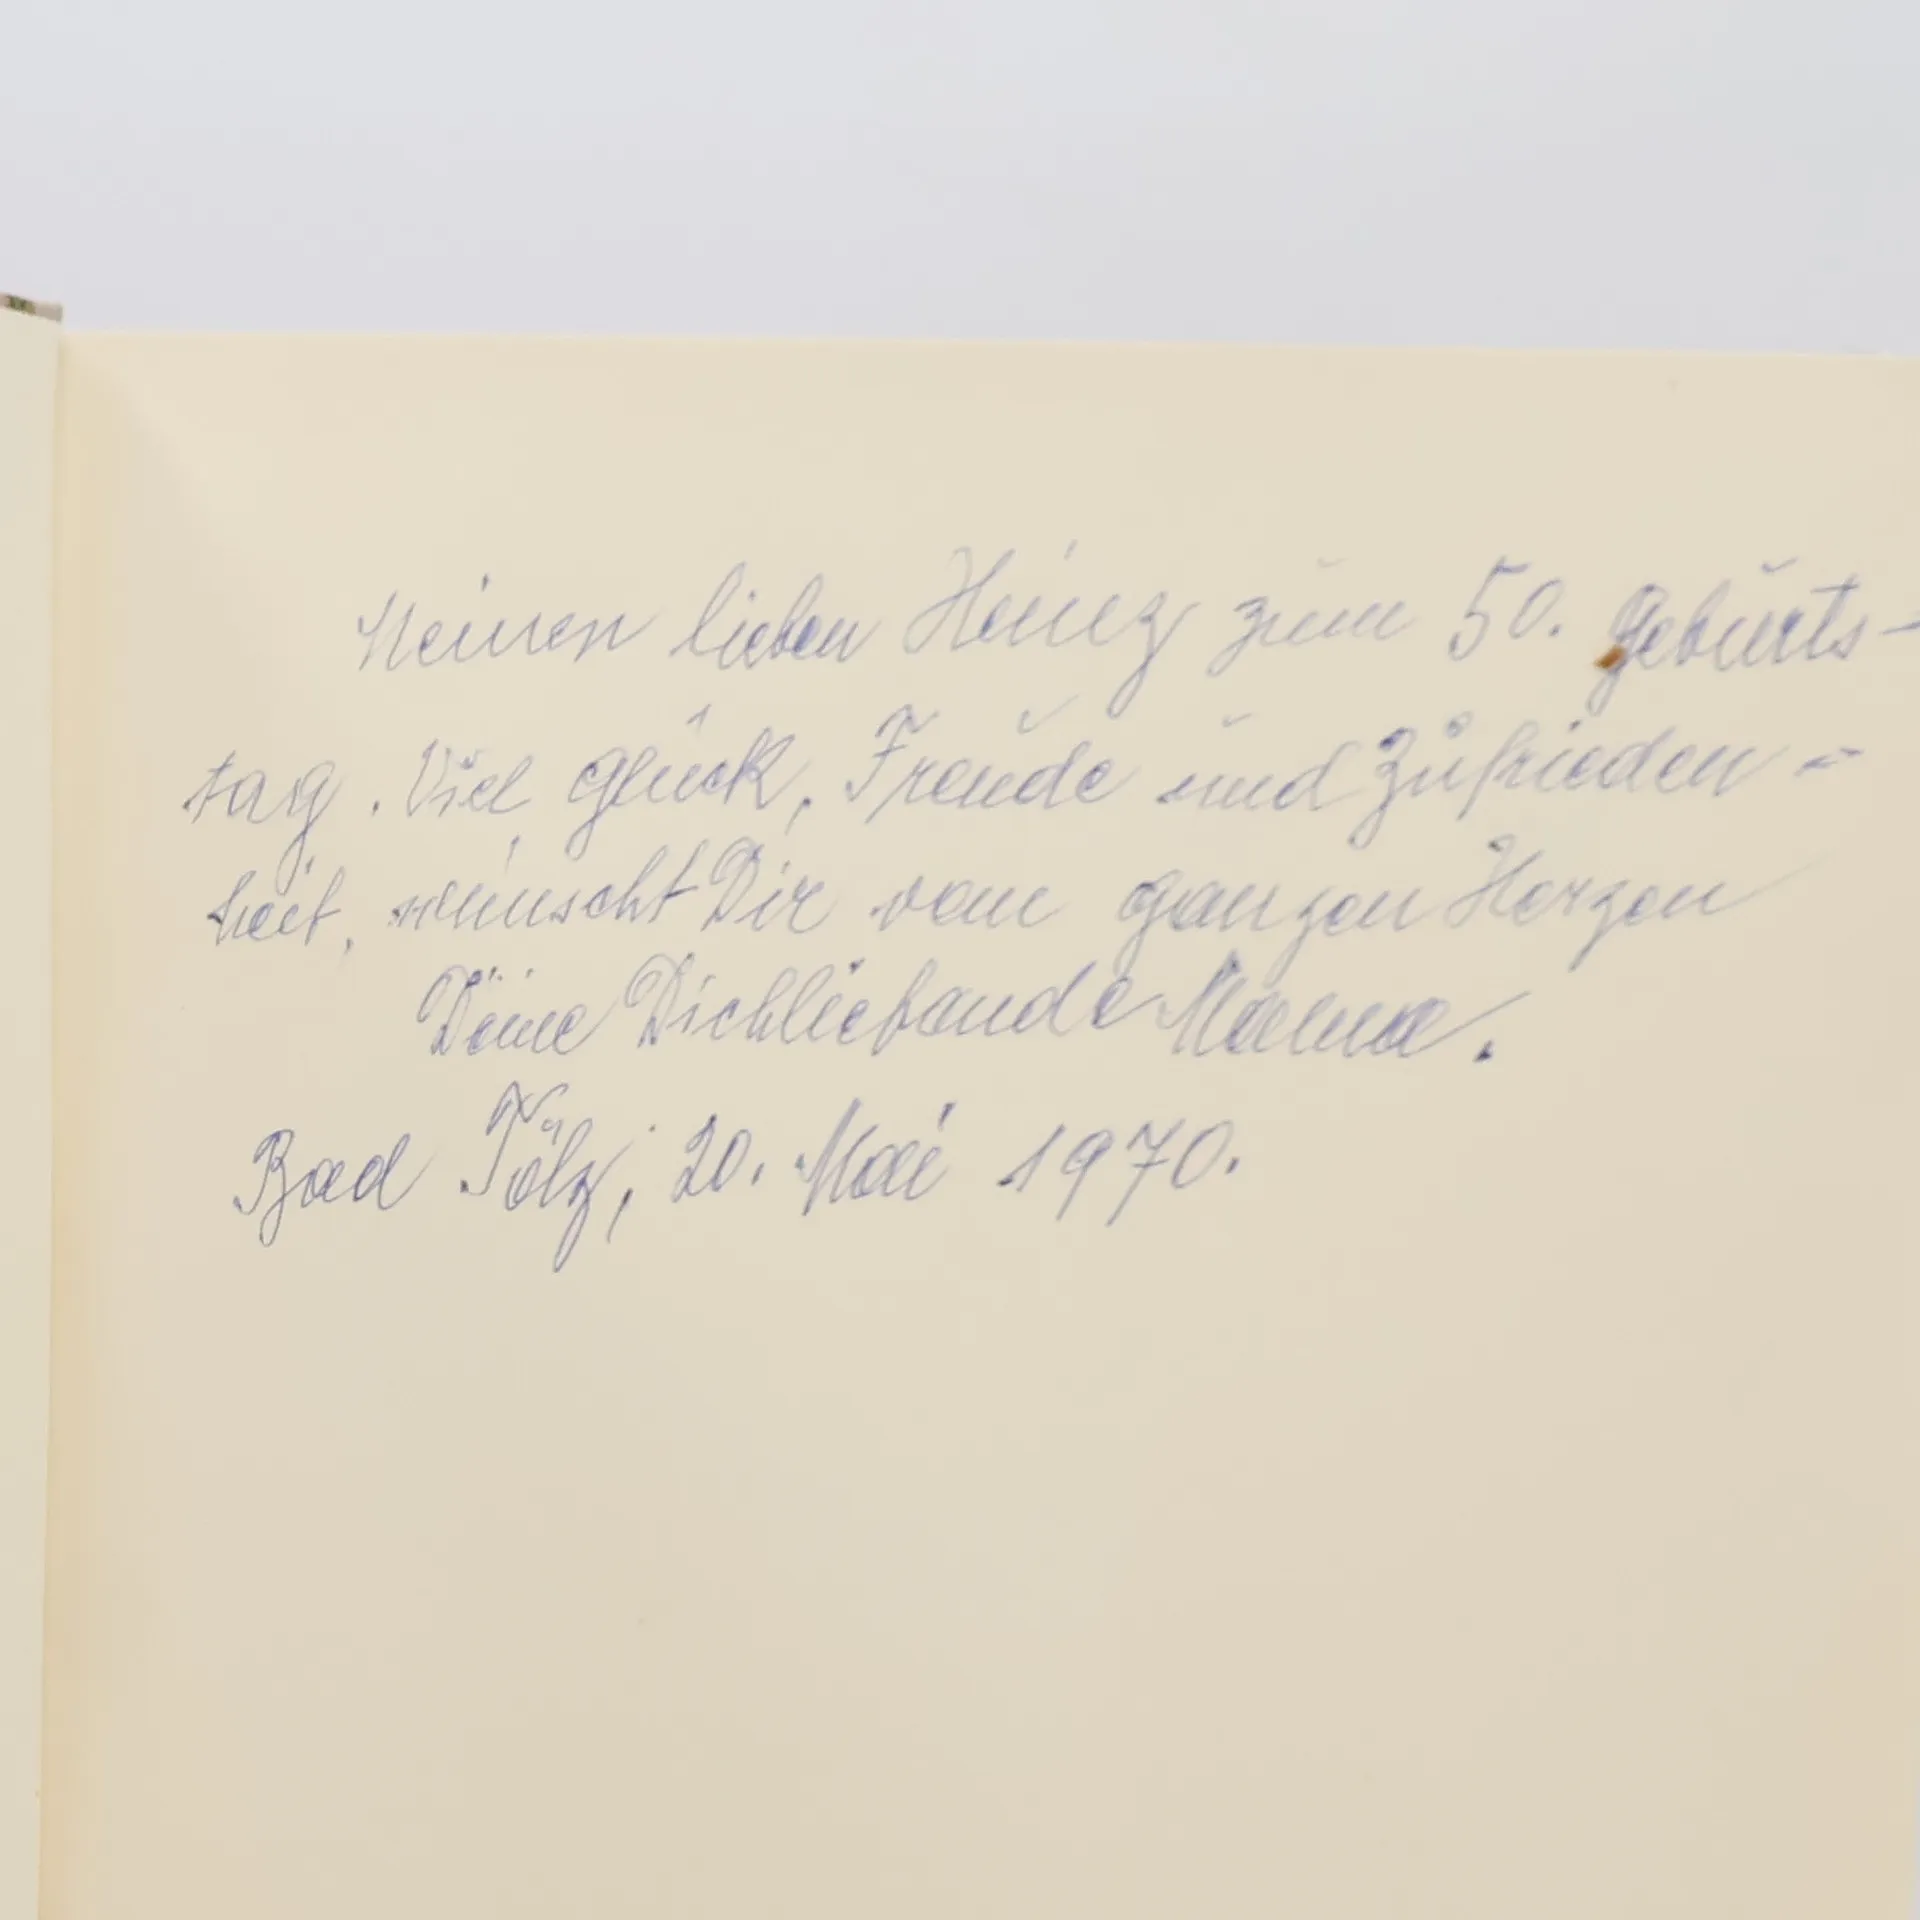 Meinen lieben Heinz zum 50. Geburts-
tag. Viel Glück, Freude und Zufrieden-
heit, wünscht Dir vom ganzen Herzen
Deine Dichliebende Mama.
Bad Tölz, 20. Mai 1970.